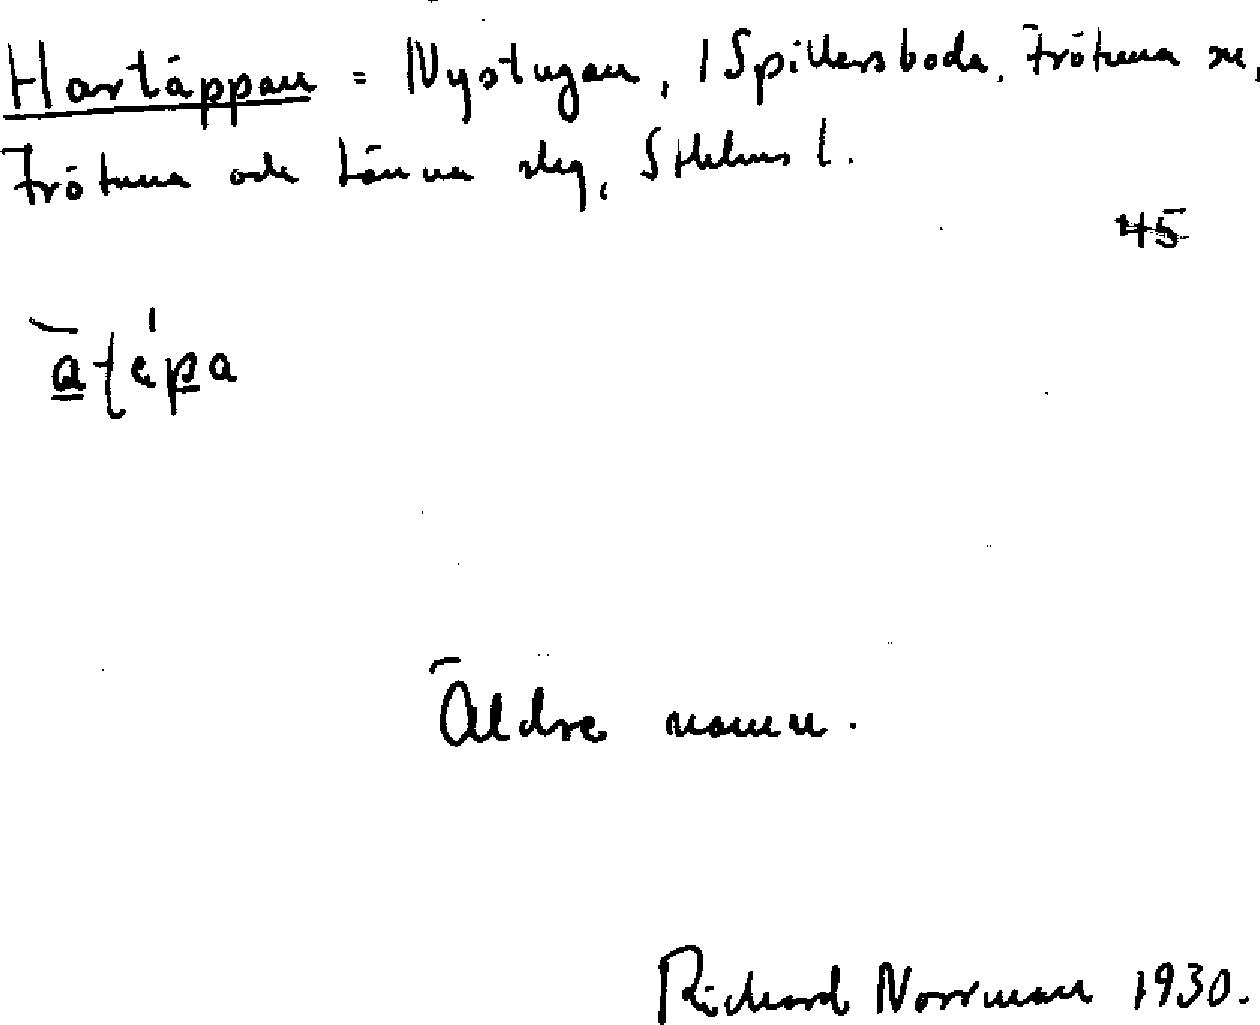 Hartäppan = Nystugan, 1 Spillersboda, Frötuna sn,
Frötuna och Länna slg, Sthlms l.
45
Äldre namn.
Richard Norrman 1930.